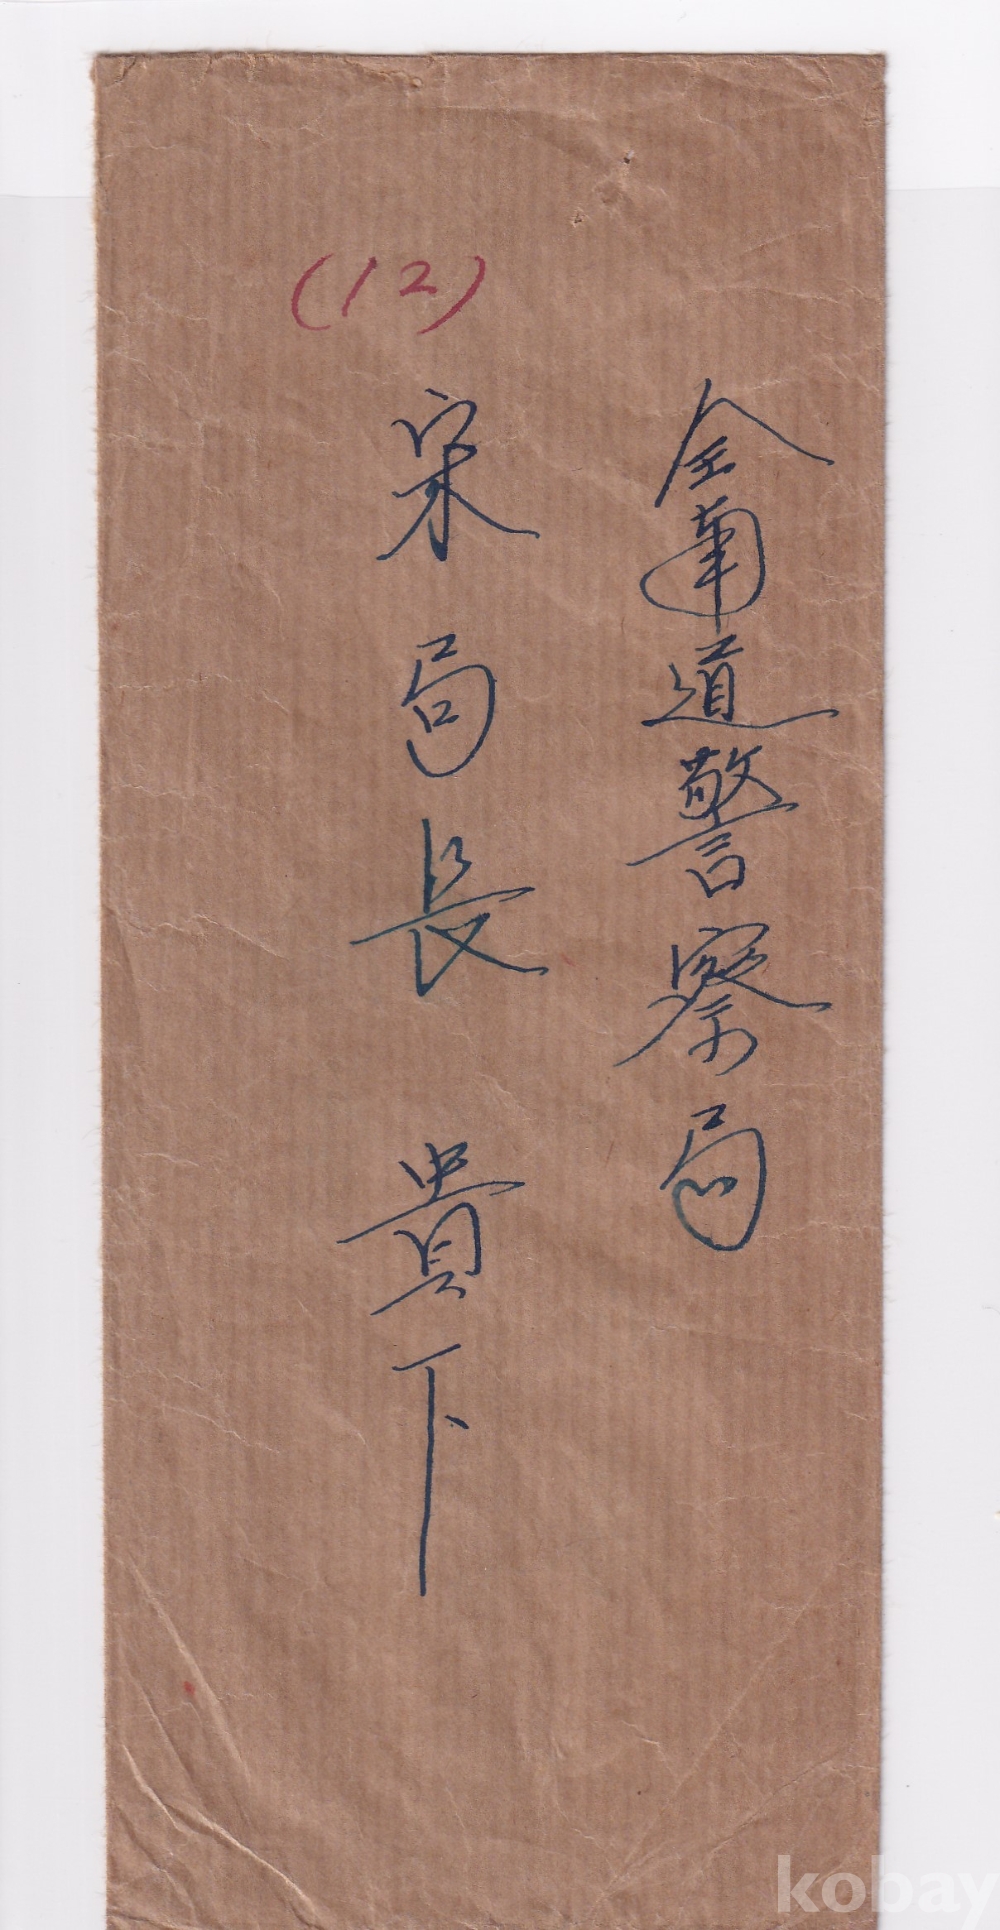 全南道警察局
(12)
宋局長 貴下
kobay